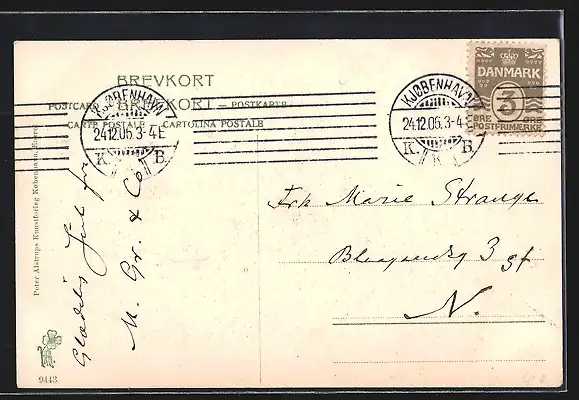 BREVKORT
POSTCARD — BREVKORT — POSTKARTE
CARTE POSTALE — CARTOLINA POSTALE
KJØBENHAVN
24.12.06.3-4E
K. B.
KJØBENHAVN
24.12.06.3-4
K. K B.
DANMARK
3
ØRE ØRE
POSTFRIMÆRKE
Frk Marie Strange
3 st
N.
Glædelig Jul fra
M. Gr. & Co
Peter Alstrups Kunstforlag København, Eneret
9443